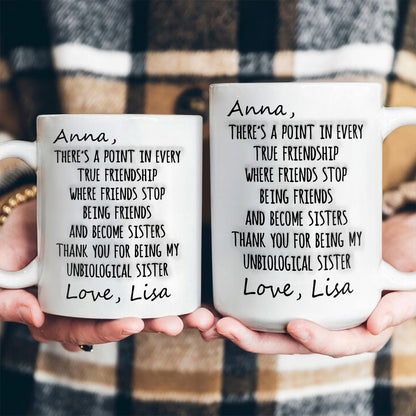 Anna,
THERE'S A POINT IN EVERY
TRUE FRIENDSHIP
WHERE FRIENDS STOP
BEING FRIENDS
AND BECOME SISTERS
THANK YOU FOR BEING MY
UNBIOLOGICAL SISTER
Love, Lisa
Anna,
THERE'S A POINT IN EVERY
TRUE FRIENDSHIP
WHERE FRIENDS STOP
BEING FRIENDS
AND BECOME SISTERS
THANK YOU FOR BEING MY
UNBIOLOGICAL SISTER
Love, Lisa